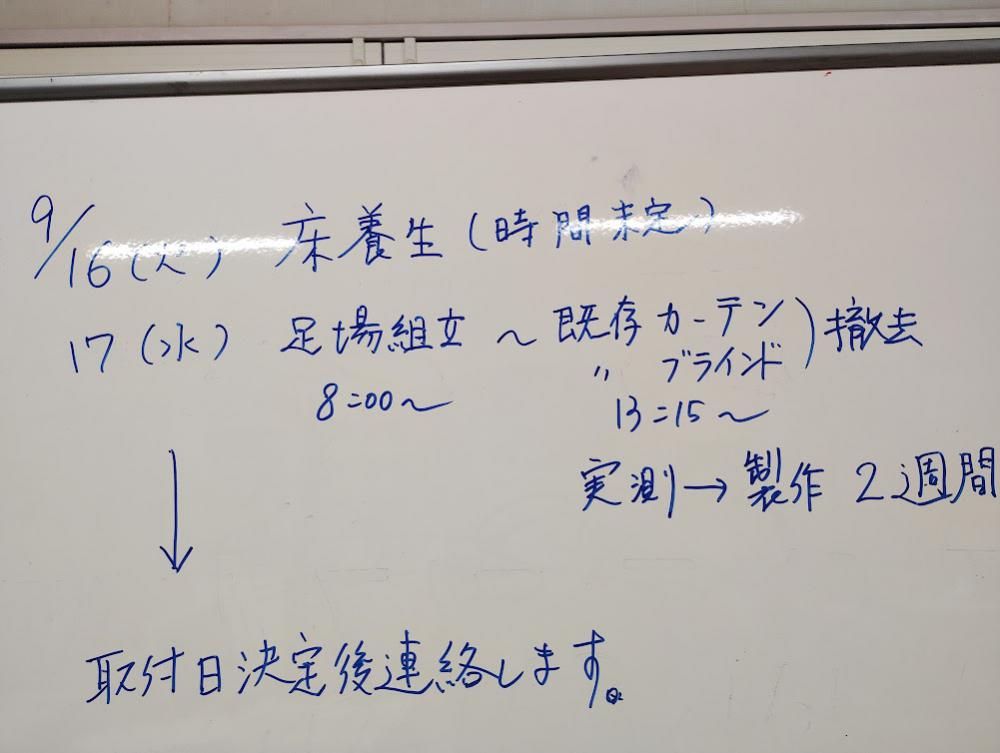 9/16(火) 床養生(時間未定)
17(水) 足場組立 ~ 既存カーテン)撤去
〃 ブラインド
8:00~ 13:15~
実測→製作 2週間
↓
取付日決定後連絡します。